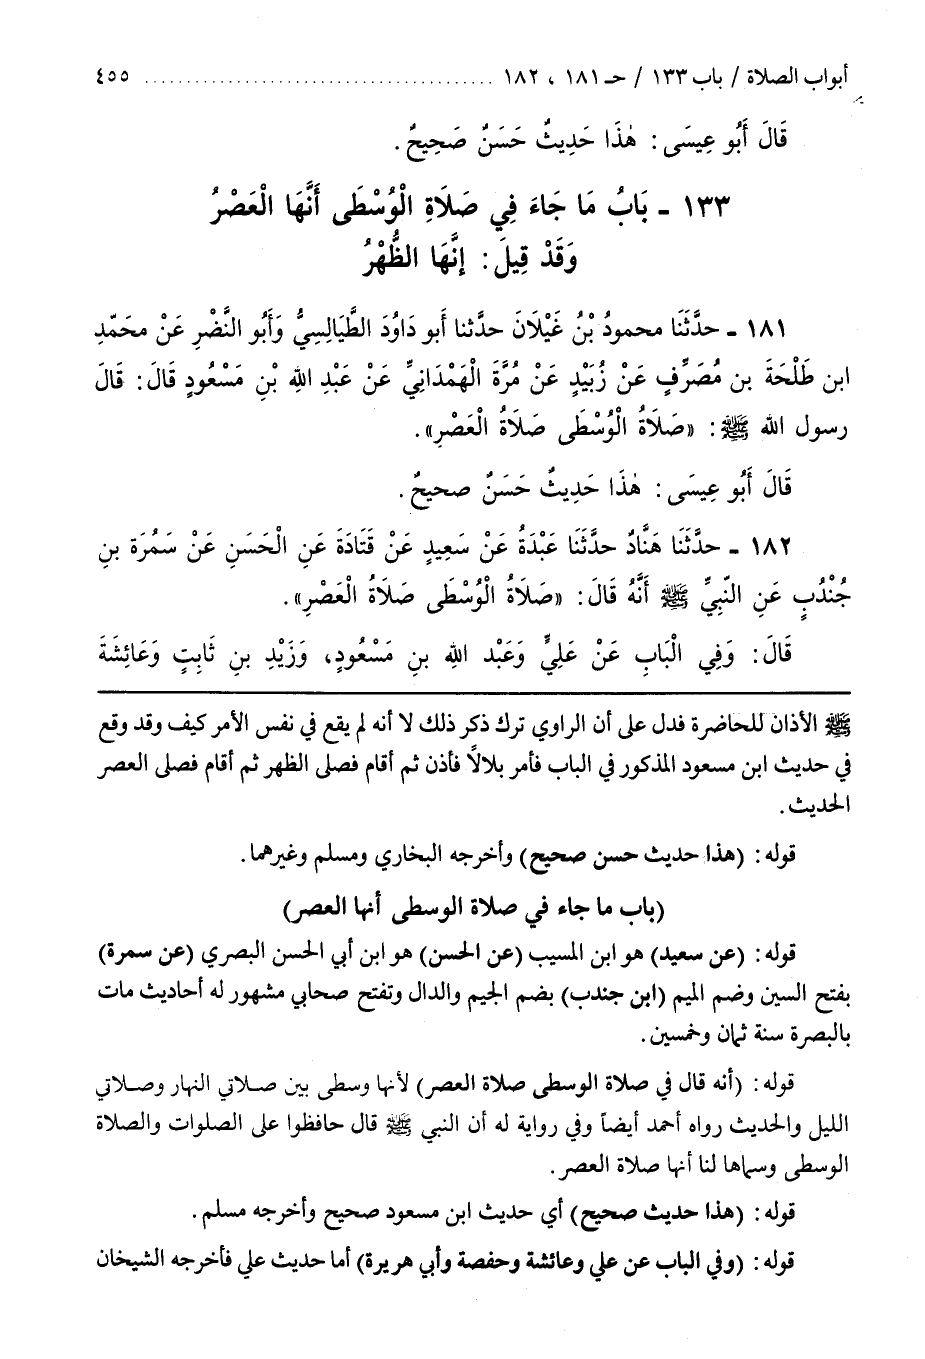 أبواب الصلاة / باب ١٣٣ / حـ ١٨١ ، ١٨٢ ........................................ ٤٥٥
قَالَ أَبُو عِيسَى: هٰذَا حَدِيثٌ حَسَنٌ صَحِيحٌ.
١٣٣ - بَابُ مَا جَاءَ فِي صَلَاةِ الْوُسْطَى أَنَّهَا الْعَصْرُ
وَقَدْ قِيلَ: إنَّهَا الظُّهْرُ
١٨١ - حدَّثَنَا محمودُ بْنُ غَيْلَانَ حدَّثنا أَبو دَاوُدَ الطَّيَالِسِيُّ وَأَبُو النَّضْرِ عَنْ محَمَّدِ
ابن طَلْحَةَ بن مُصَرِّفٍ عَنْ زُبَيْدٍ عَنْ مُرَّةَ الْهَمْدَانِيِّ عَنْ عَبْدِ اللهِ بْنِ مَسْعُودٍ قَالَ: قَالَ
رسول الله ﷺ: «صَلَاةُ الْوُسْطَى صَلَاةُ الْعَصْرِ».
قَالَ أَبُو عِيسَى: هٰذَا حَدِيثٌ حَسَنٌ صحيحٌ.
١٨٢ - حدَّثَنَا هَنَّادٌ حدَّثَنَا عَبْدَةُ عَنْ سَعِيدٍ عَنْ قَتَادَةَ عَنِ الْحَسَنِ عَنْ سَمُرَة بنِ
جُنْدُبٍ عَنِ النَّبِيِّ ﷺ أَنَّهُ قَالَ: «صَلَاةُ الْوُسْطَى صَلَاةُ الْعَصْرِ».
قَالَ: وَفِي الْبَابِ عَنْ عَلِيٍّ وَعَبْد الله بنِ مَسْعُودٍ، وَزَيْدِ بنِ ثَابِتٍ وَعَائِشَةَ
ﷺ الأذان للحاضرة فدل على أن الراوي ترك ذكر ذلك لا أنه لم يقع في نفس الأمر كيف وقد وقع
في حديث ابن مسعود المذكور في الباب فأمر بلالاً فأذن ثم أقام فصلى الظهر ثم أقام فصلى العصر
الحديث.
قوله: (هذا حديث حسن صحيح) وأخرجه البخاري ومسلم وغيرهما.
(باب ما جاء في صلاة الوسطى أنها العصر)
قوله: (عن سعيد) هو ابن المسيب (عن الحسن) هو ابن أبي الحسن البصري (عن سمرة)
بفتح السين وضم الميم (ابن جندب) بضم الجيم والدال وتفتح صحابي مشهور له أحاديث مات
بالبصرة سنة ثمان وخمسين.
قوله: (أنه قال في صلاة الوسطى صلاة العصر) لأنها وسطى بين صلاتي النهار وصلاتي
الليل والحديث رواه أحمد أيضاً وفي رواية له أن النبي ﷺ قال حافظوا على الصلوات والصلاة
الوسطى وسماها لنا أنها صلاة العصر.
قوله: (هذا حديث صحيح) أي حديث ابن مسعود صحيح وأخرجه مسلم.
قوله: (وفي الباب عن علي وعائشة وحفصة وأبي هريرة) أما حديث علي فأخرجه الشيخان